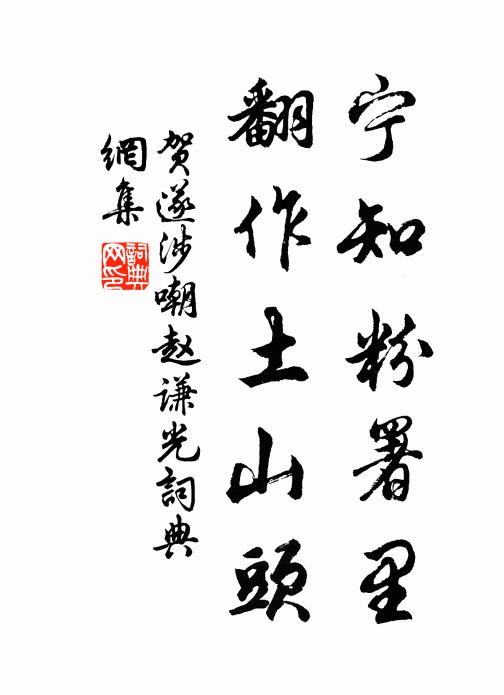 宁知粉署里
翻作土山頭
贺遂涉嘲赵谦光詞典
網集
詞典
网印